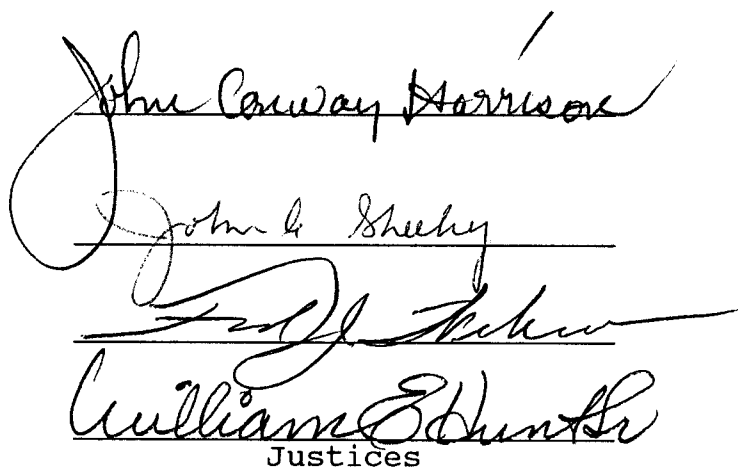 John Conway Harrison
John C. Sheehy
Fred J.
William E Hunt Sr
Justices